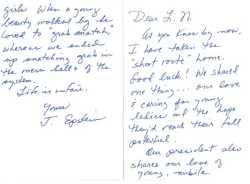 girls. When a young
beauty walked by he
loved to "grab snatch,"
whereas we ended
up snatching grub in
the mess halls of the
system.
Life is unfair.
Yours
J. Epstein
Dear L.N.
As you know by now,
I have taken the
"short route" home.
Good luck! We shared
one thing... our love
& caring for young
ladies and the hope
they'd reach their full
potential.
Our president also
shares our love of
young, nubile